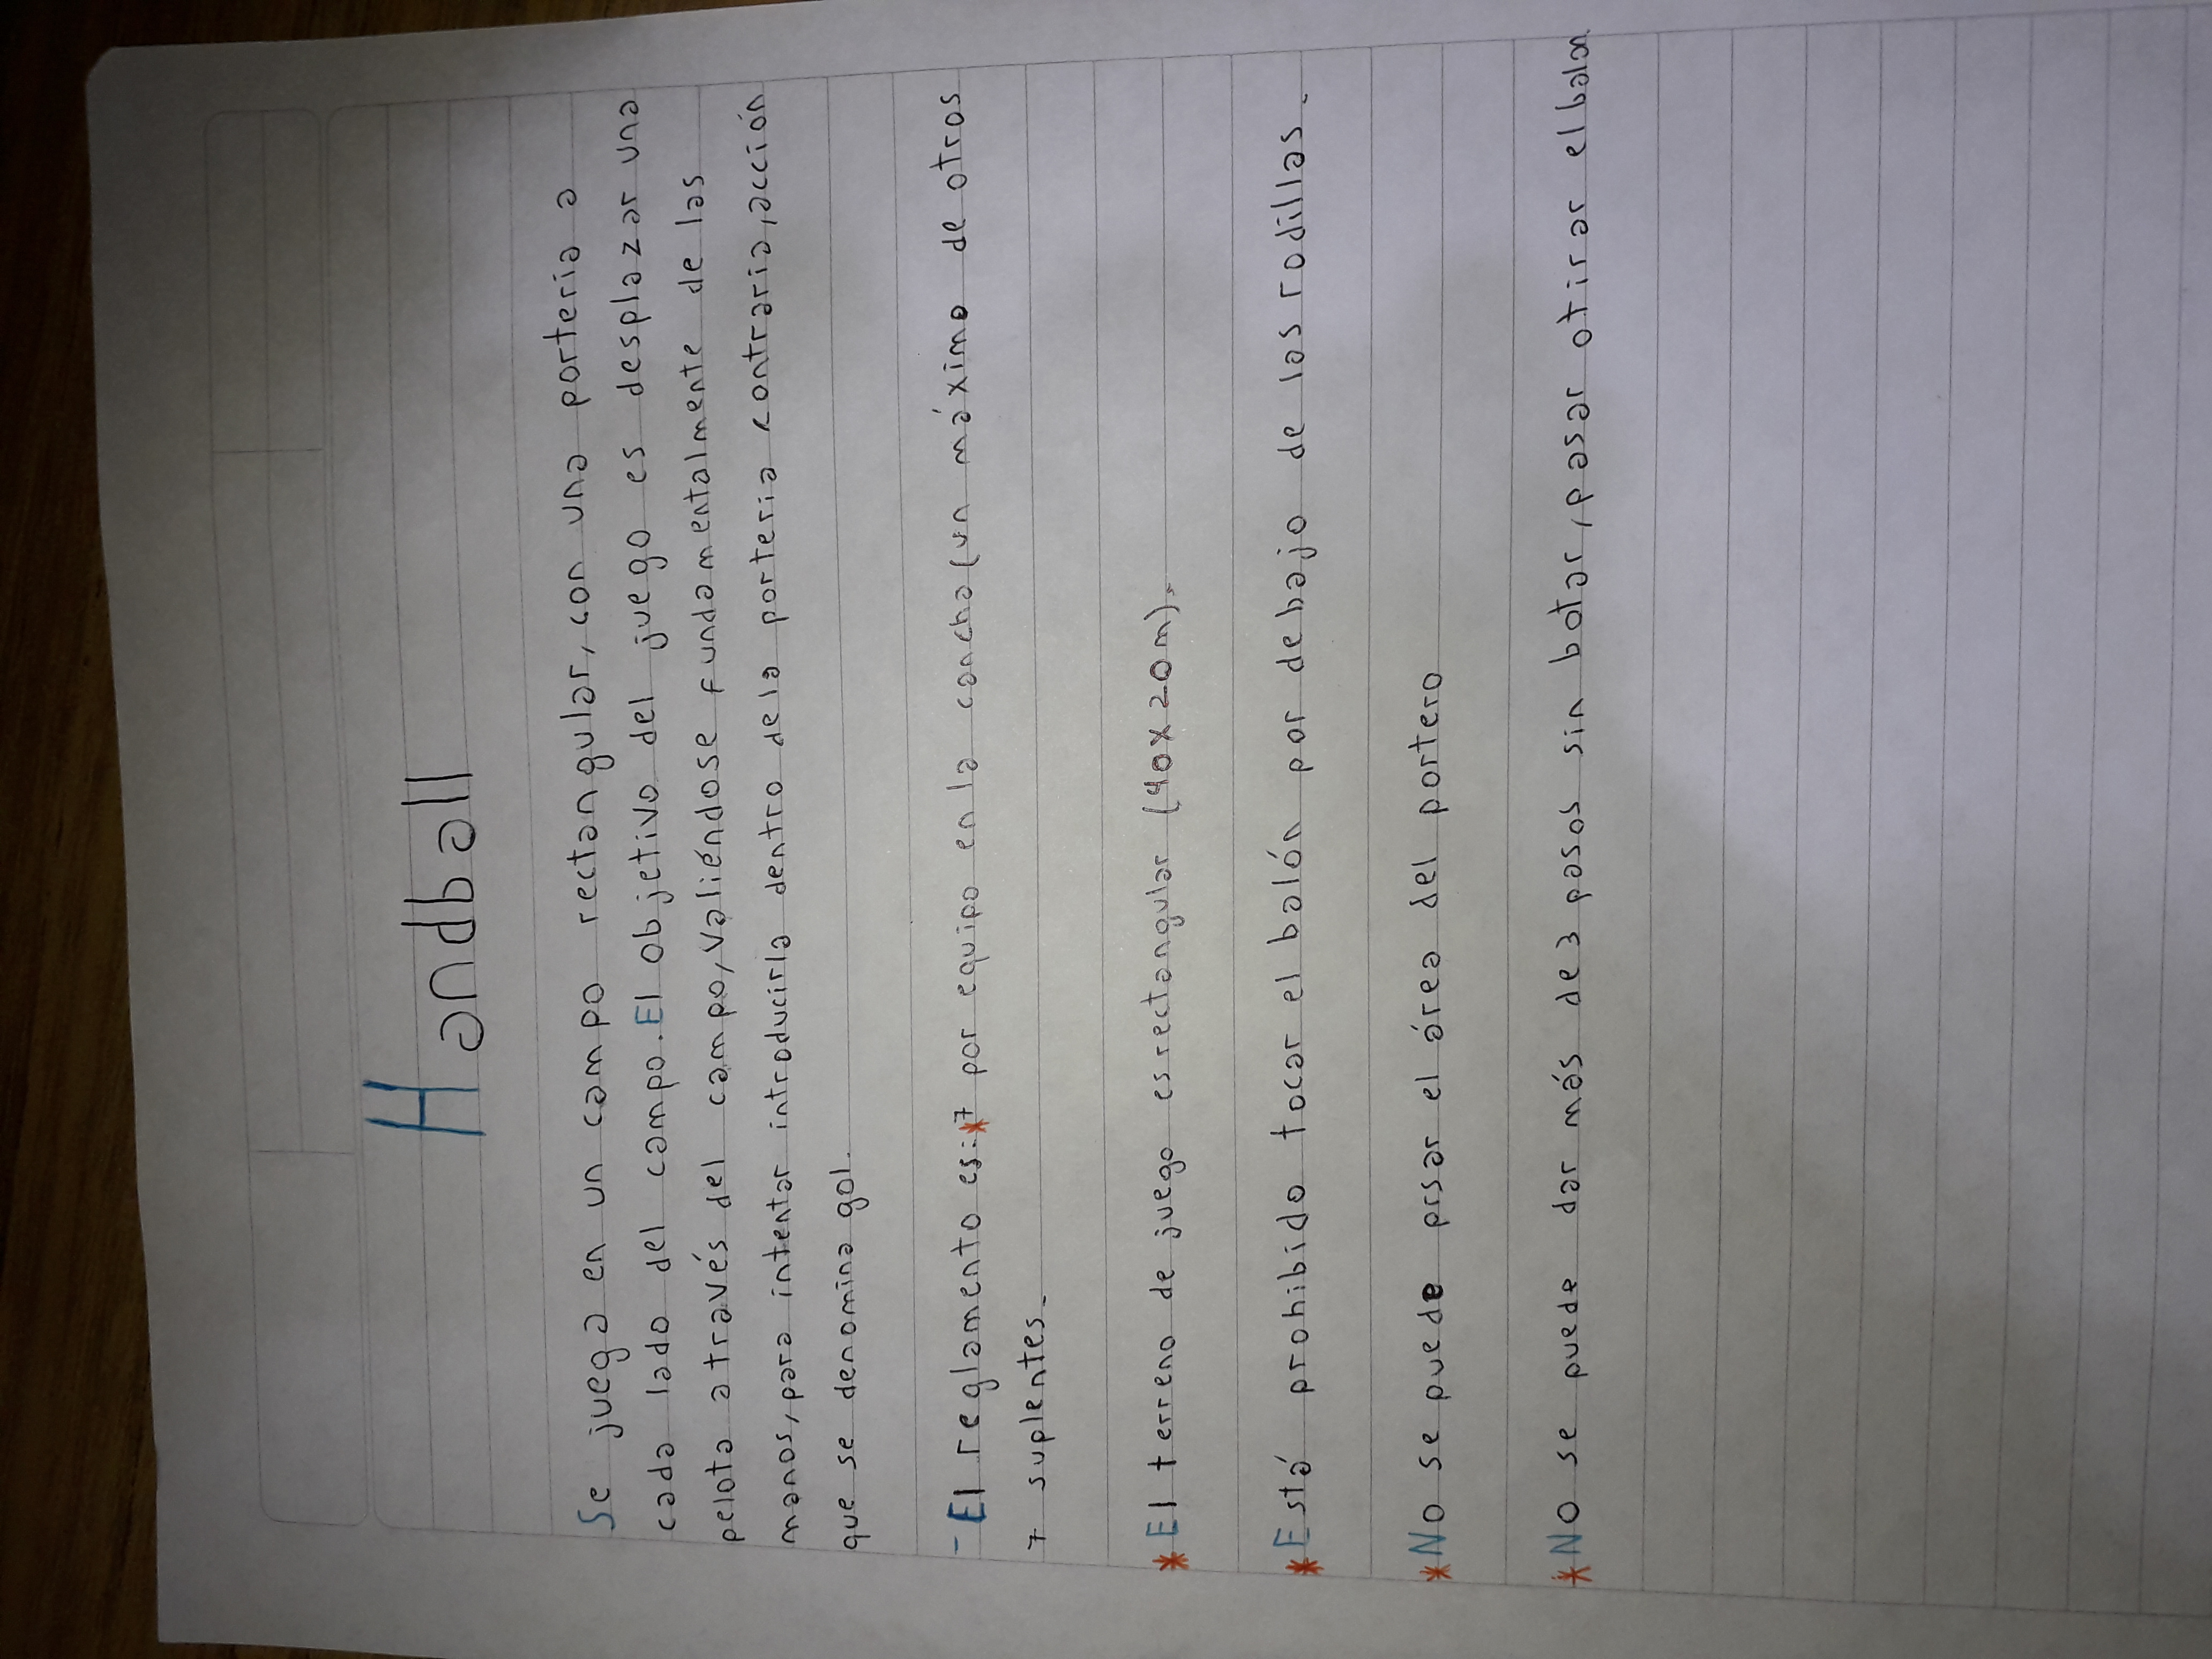 Handball
Se juega en un campo rectangular, con una porteria a
cada lado del campo. El objetivo del juego es desplazar una
pelota através del campo, valiéndose fundamentalmente de las
manos, para intentar introducirla dentro de la porteria contraria, acción
que se denomina gol.
- El reglamento es: *7 por equipo en la cancha (un máximo de otros
7 suplentes.
*El terreno de juego es rectangular (40x20m).
*Está prohibido tocar el balón por debajo de las rodillas.
*No se puede prsar el área del portero
*No se puede dar más de 3 pasos sin botar, pasar o tirar el balon